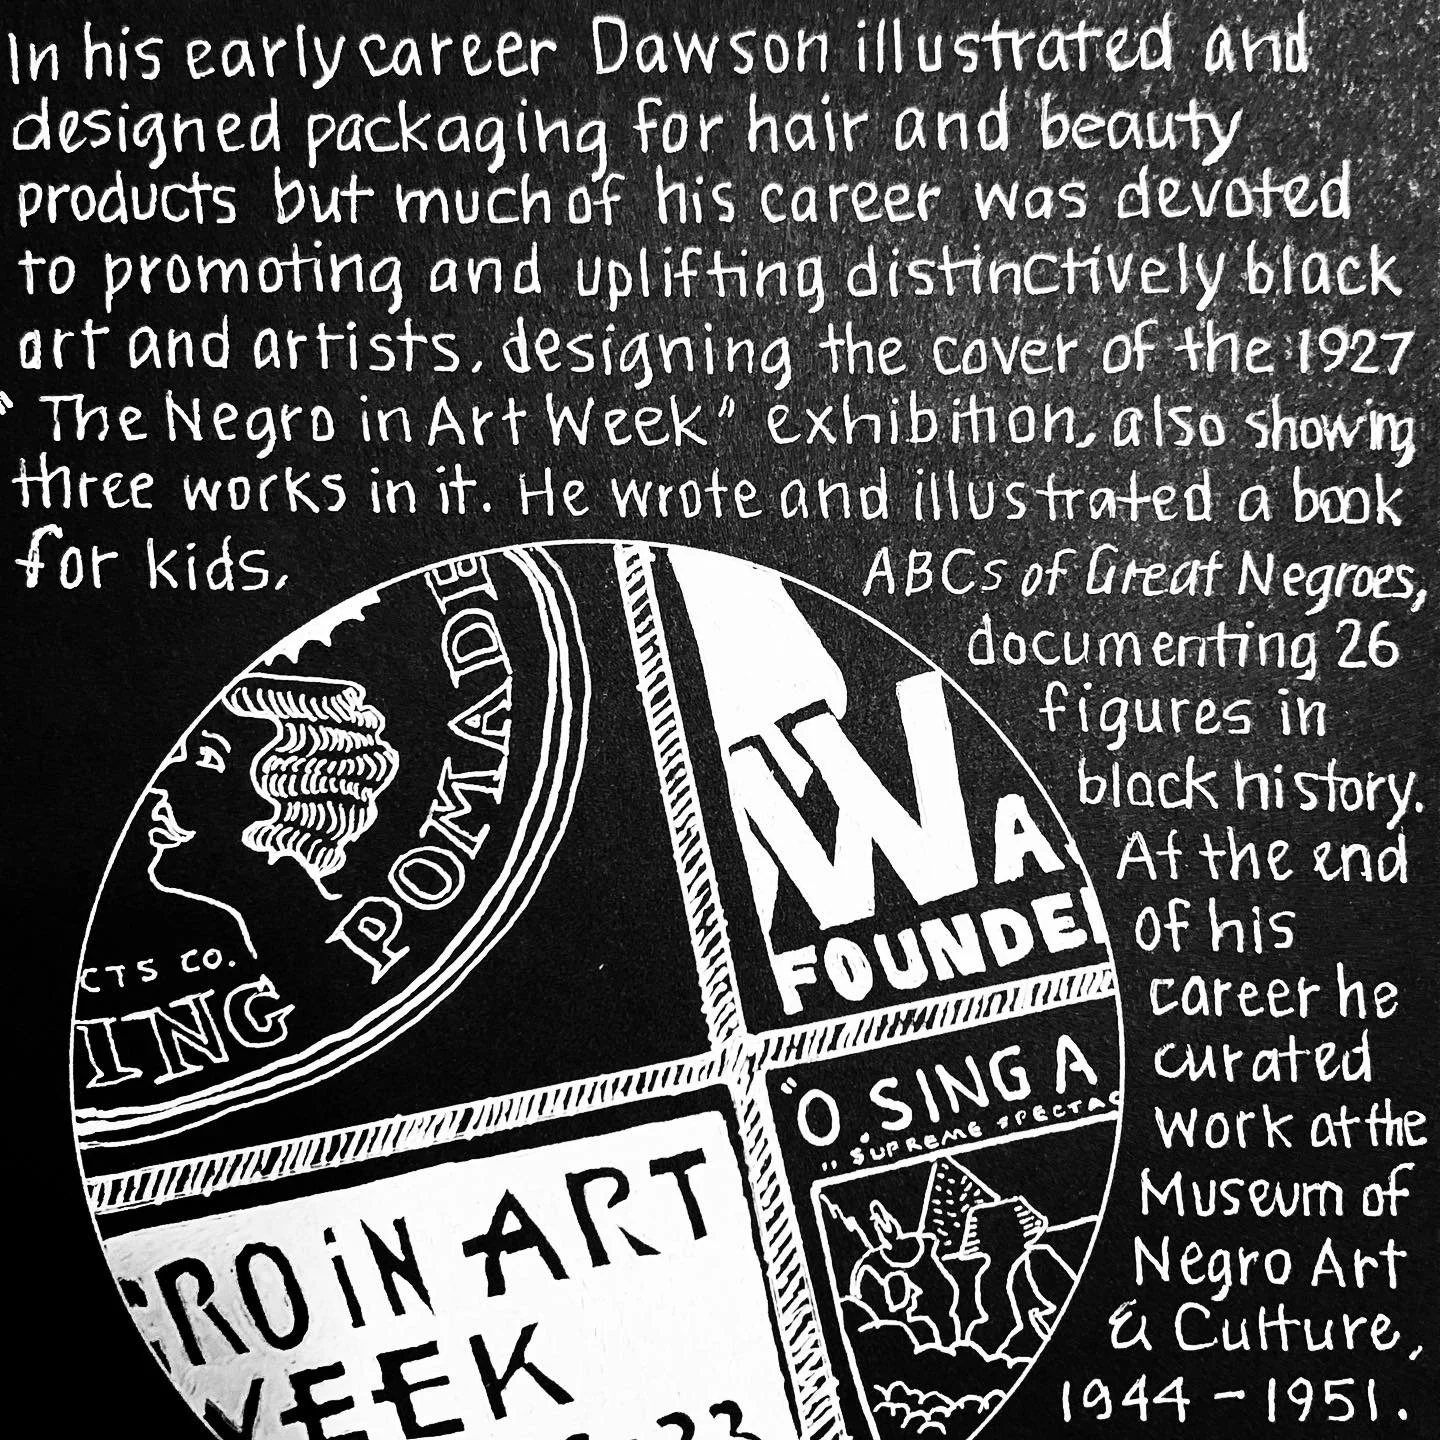 In his early career Dawson illustrated and
designed packaging for hair and beauty
products but much of his career was devoted
to promoting and uplifting distinctively black
art and artists, designing the cover of the 1927
"The Negro in Art Week" exhibition, also showing
three works in it. He wrote and illustrated a book
for kids,
ABCs of Great Negroes,
documenting 26
figures in
black history.
At the end
of his
career he
curated
work at the
Museum of
Negro Art
& Culture,
1944 - 1951.
POMADE
CTS CO.
ING
WA
FOUNDE
"O, SING A
"SUPREME SPECTAC
RO iN ART
WEEK
23